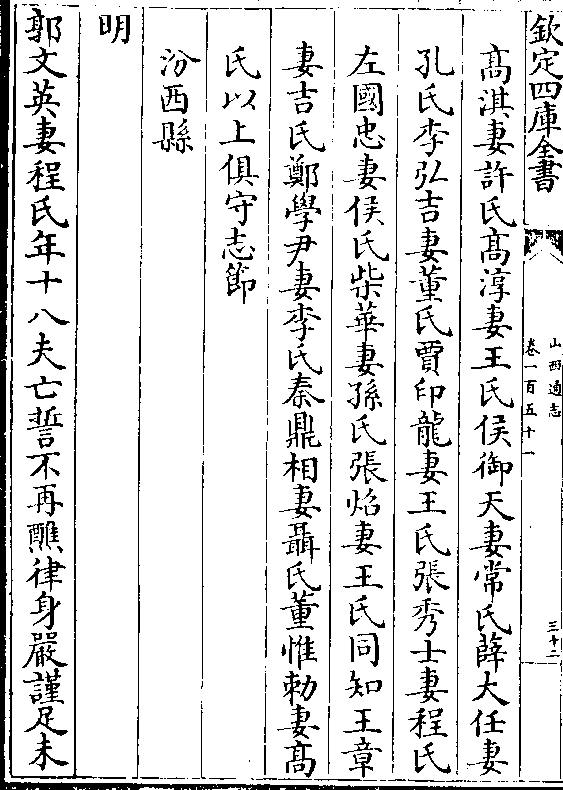 欽定四庫全書
山西通志
卷一百五十一
三十二
高淇妻許氏高淳妻王氏侯御天妻常氏薛大任妻
孔氏李弘吉妻董氏賈印龍妻王氏張秀士妻程氏
左國忠妻侯氏柴華妻孫氏張焰妻王氏同知王章
妻吉氏鄭學尹妻李氏秦鼎相妻聶氏董惟勅妻高
氏以上俱守志節
汾西縣
明
郭文英妻程氏年十八夫亡誓不再醮律身嚴謹足未